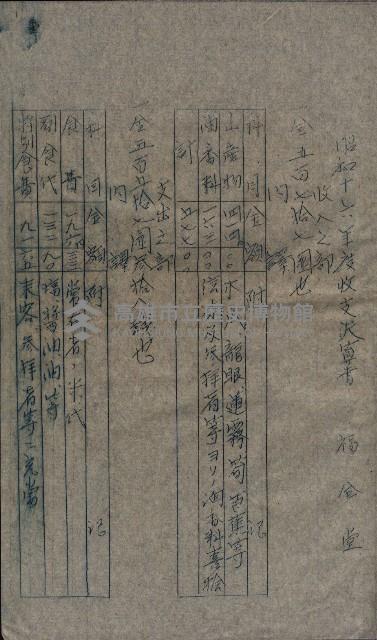 昭和十六年度收支決算書　福全堂
收入之部
一金五百七拾七圓也
內譯
科目　金額　附記
山產物　四一四〇〇　水代龍眼蓮霧筍芭蕉等
油香料　一六三〇〇　信徒及參拜者等ヨリノ油香料喜捨
計　五七七〇〇
支出之部
一金五百五拾七圓參拾八錢也
內譯
科目　金額　附記
食費　常住者ノ米代
副食代　醬油油等
特別食費　來客參拜者等ニ充當
高雄市立歷史博物館